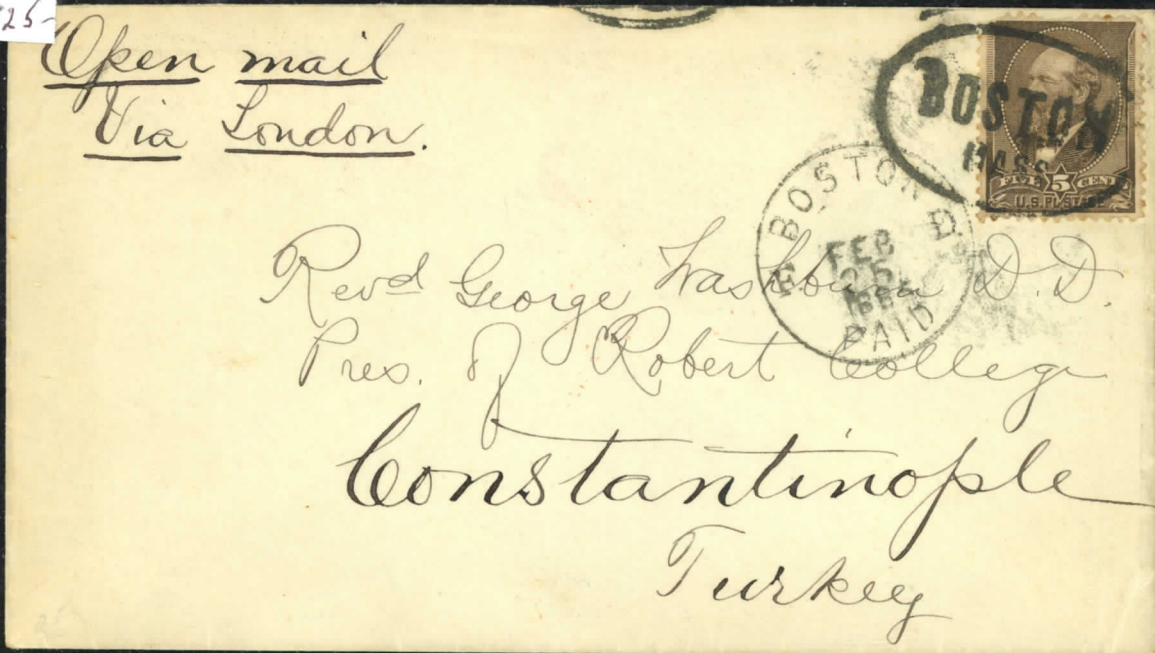 25-
Open mail
Via London.
BOSTON
MASS
FIVE 5 CENTS
U.S. POSTAGE
BOSTON
FEB
25
PAID
Revd George Washburn D.D.
Pres. of Robert College
Constantinople
Turkey